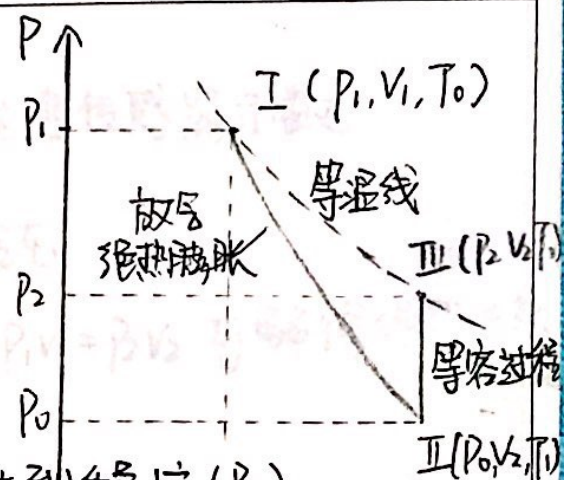 P
P₁
I (P₁,V₁,T₀)
等温线
放气
绝热膨胀
III (P₂ V₂ T₀)
P₂
等容过程
P₀
II (P₀,V₂,T₁)
(P₀)